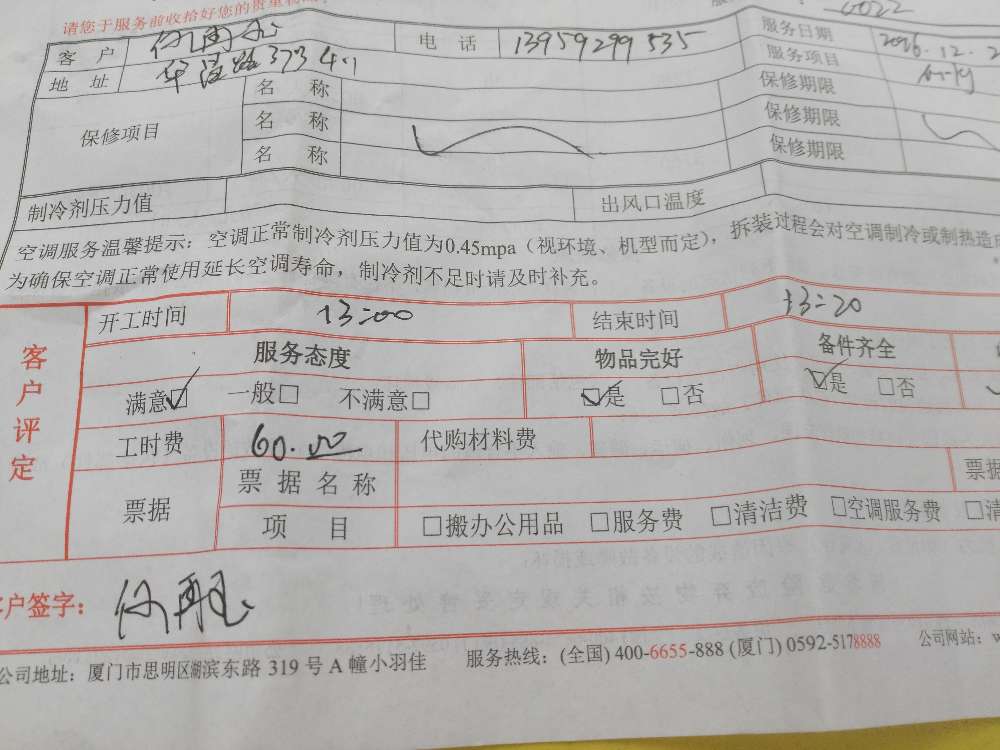 请您于服务前收拾好您的贵重物品
客 户 电 话 13959299535 服务日期 2016.12.2
地 址 373 服务项目
保修项目 名 称 保修期限
名 称 保修期限
名 称 保修期限
制冷剂压力值 出风口温度
空调服务温馨提示：空调正常制冷剂压力值为0.45mpa（视环境、机型而定），拆装过程会对空调制冷或制热造
为确保空调正常使用延长空调寿命，制冷剂不足时请及时补充。
客户评定
开工时间 13:00 结束时间 13:20
服务态度 物品完好 备件齐全
满意☑ 一般□ 不满意□ ☑是 □否 ☑是 □否
工时费 60.00 代购材料费
票据 票 据 名 称 票据
项 目 □搬办公用品 □服务费 □清洁费 □空调服务费 □清
客户签字：
公司地址：厦门市思明区湖滨东路 319 号 A 幢小羽佳 服务热线：(全国) 400-6655-888 (厦门) 0592-5178888 公司网站：w